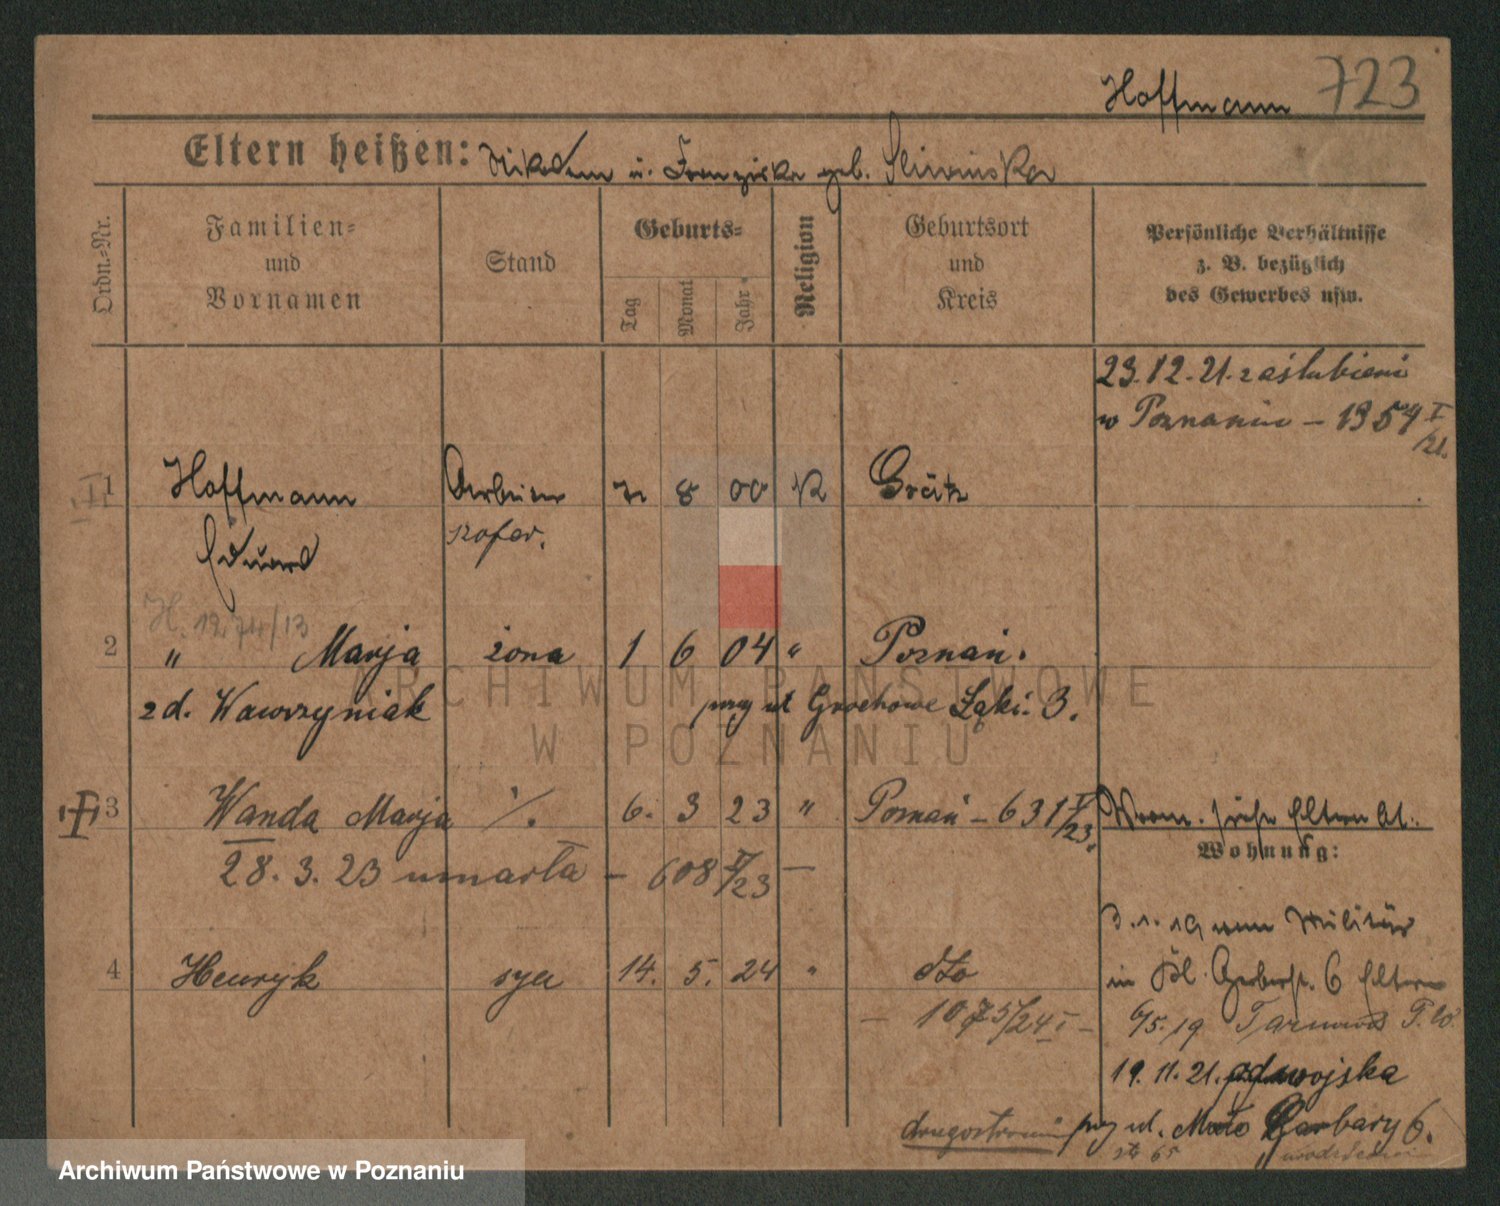 Hoffmann 723
Eltern heißen: Nikodem u. Franziska geb. Sliwinska
Ordn.-Nr.
Familien- und Vornamen
Stand
Geburts-
Tag Monat Jahr
Religion
Geburtsort und Kreis
Persönliche Verhältnisse
z. B. bezüglich
des Gewerbes usw.
23.12.21. zaślubieni
w Poznaniu – 1354 I/21.
1 Hoffmann Arbeiter 7 8 00 K Grätz
Eduard szofer.
H. 1274/13
2 " Marja żona 1 6 04 " Poznań.
z d. Wawrzyniak przy ul Grochowe Łąki. 3.
3 Wanda Marja ./. 6. 3 23 " Poznań – 631 I/23.
Wohnung:
28. 3. 23 umarła – 608 I/23 –
3.1.19 vom Militär
4 Henryk syn 14. 5. 24 " dto
in Kl. Gerberst. 6 Eltern
– 1075/24 I –
6/5.19
19.11.21. od wojska
przy ul. Małe Garbary 6.
Archiwum Państwowe w Poznaniu
ARCHIWUM PAŃSTWOWE
W POZNANIU